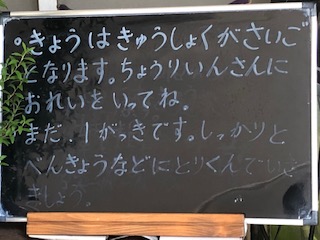 。きょうはきゅうしょくがさいご
となります。ちょうりいんさんに
おれいをいってね。
まだ、1がっきです。しっかりと
べんきょうなどにとりくんでいき
ましょう。